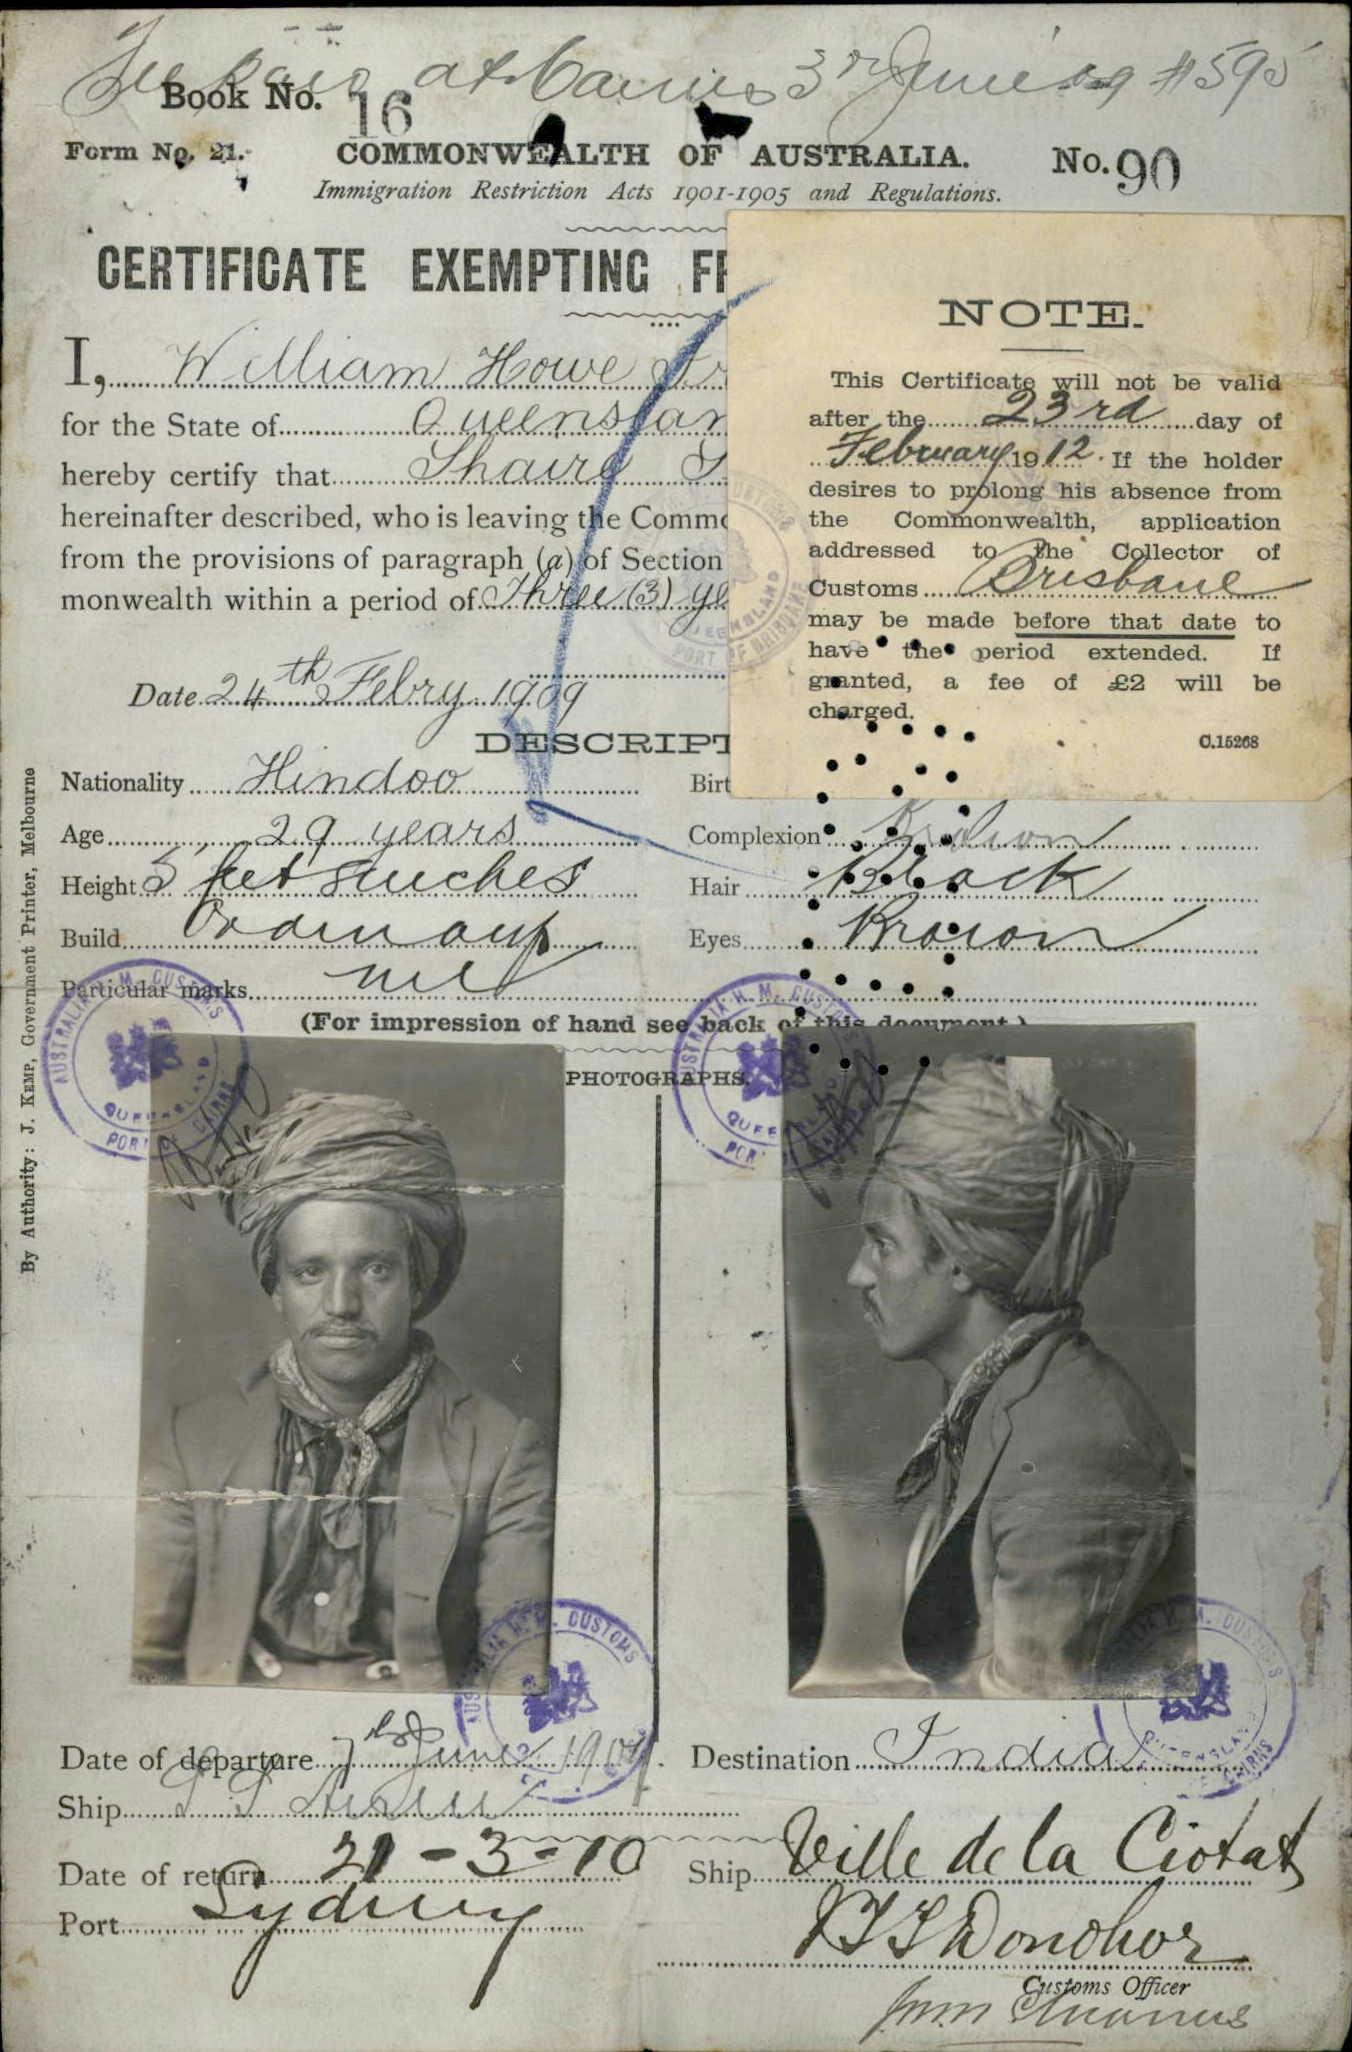 Fee paid at Cairns 3rd June 09 #595
Book No. 16
Form No. 21. COMMONWEALTH OF AUSTRALIA. No. 90
Immigration Restriction Acts 1901-1905 and Regulations.
CERTIFICATE EXEMPTING
I, William Howe
for the State of
hereby certify that
hereinafter described, who is leaving the
from the provisions of paragraph (a) of Section
monwealth within a period of Three (3)
Date 24th Febry. 1909
NOTE.
This Certificate will not be valid
after the 23rd day of
February 1912. If the holder
desires to prolong his absence from
the Commonwealth, application
addressed to the Collector of
Customs Brisbane
may be made before that date to
have the period extended. If
granted, a fee of £2 will be
charged.
C.15268
Nationality Hindoo
Age 29 years
Complexion Brown
Height 5 feet inches
Hair Black
Build Ordinary
Eyes Brown
Particular marks nil
(For impression of hand see back of this document.)
PHOTOGRAPHS.
AUSTRALIA H. M. CUSTOMS
QUEENSLAND
PORT OF CAIRNS
AUSTRALIA H. M. CUSTOMS
QUEENSLAND
AUSTRALIA H. M. CUSTOMS
H. M. CUSTOMS
QUEENSLAND
CAIRNS
QUEENSLAND
PORT OF BRISBANE
By Authority: J. KEMP, Government Printer, Melbourne
Date of departure 7th June 1909.
Destination India
Ship S S
Date of return 21-3-10
Ship Ville de la Ciotat
Port Sydney
Donohoe
Customs Officer